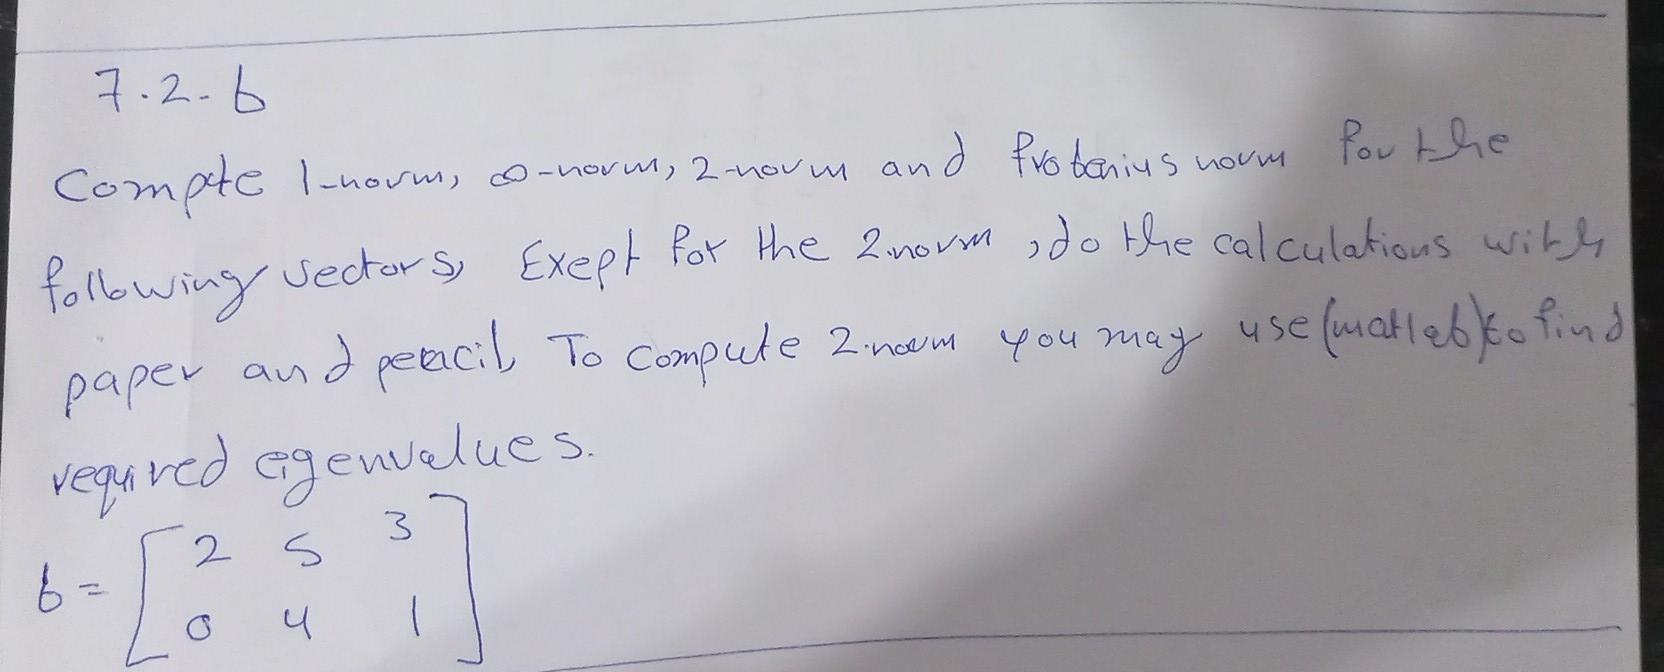 7.2-b
Compte 1-norm, ∞-norm, 2-norm and frobenius norm for the
following vectors, Exept for the 2.norm, do the calculations with
paper and pencil, To compute 2.norm you may use (matlab) to find
required eigenvalues.
b = [ 2 5 3
0 4 1 ]